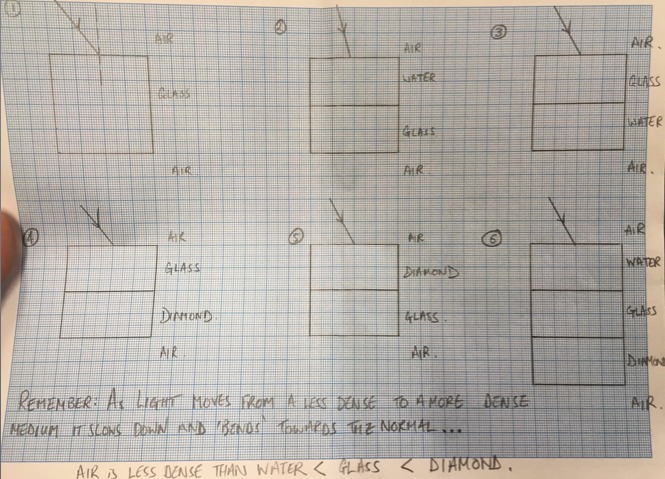 ①
AIR
GLASS
AIR
②
AIR
WATER
GLASS
AIR
③
AIR.
GLASS
WATER
AIR.
④
AIR
GLASS
DIAMOND.
AIR
⑤
AIR
DIAMOND
GLASS.
AIR.
⑥
AIR
WATER
GLASS
DIAMOND
AIR.
REMEMBER: AS LIGHT MOVES FROM A LESS DENSE TO A MORE DENSE
MEDIUM IT SLOWS DOWN AND 'BENDS' TOWARDS THE NORMAL...
AIR IS LESS DENSE THAN WATER < GLASS < DIAMOND.